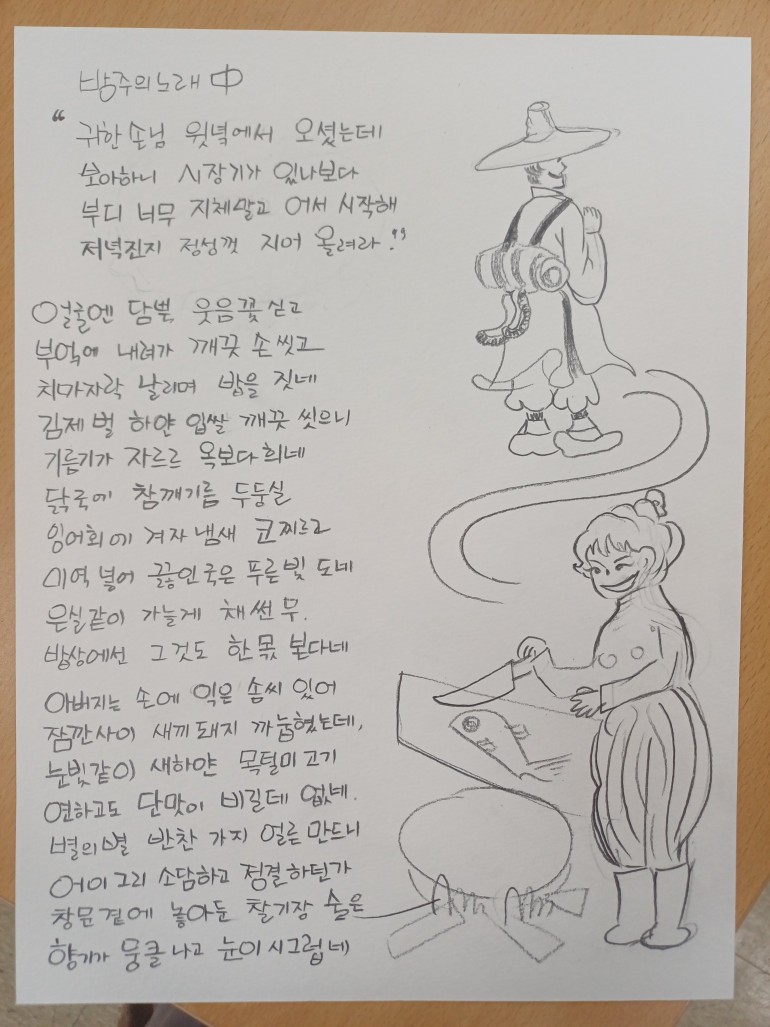 방주의노래 中
“귀한손님 윗녘에서 오셨는데
보아하니 시장기가 있나보다
부디 너무 지체말고 어서 시작해
저녁진지 정성껏 지어 올려라!”
얼굴엔 담뿍 웃음꽃 싣고
부엌에 내려가 깨끗 손 씻고
치마자락 날리며 밥을 짓네
김제벌 하얀 입쌀 깨끗 씻으니
기름기가 자르르 옥보다 희네
닭국에 참깨기름 두둥실
잉어회에 겨자 냄새 코찌르고
미역 넣어 끓인국은 푸른빛 도네
은실같이 가늘게 채썬 무.
밥상에선 그것도 한몫 본다네
아버지는 손에 익은 솜씨 있어
잠깐사이 새끼돼지 까눕혔는데,
눈빛같이 새하얀 목털미 고기
연하고도 단맛이 비길데 없네.
별의별 반찬 가지 얼른 만드니
어이 그리 소담하고 정결하던가
창문곁에 놓아둔 찰기장 술은
향기가 뭉클 나고 눈이 시그럽네